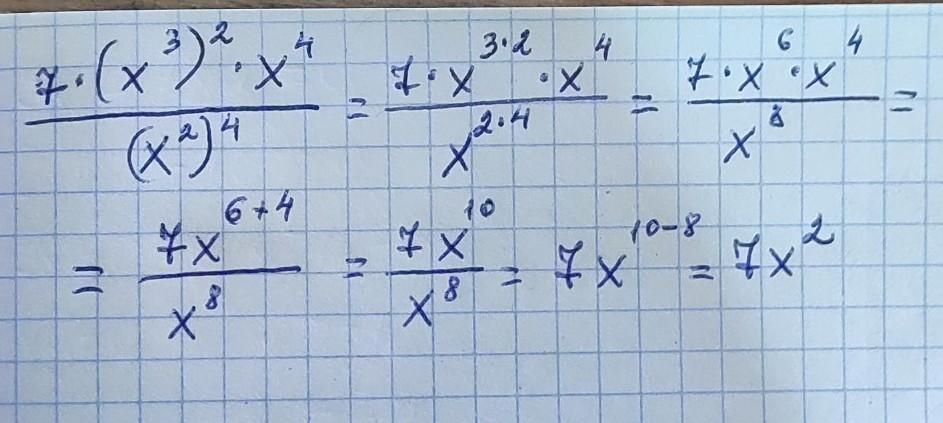 7·(x³)²·x⁴/(x²)⁴ = 7·x³·²·x⁴/x²·⁴ = 7·x⁶·x⁴/x⁸ =
= 7x⁶⁺⁴/x⁸ = 7x¹⁰/x⁸ = 7x¹⁰⁻⁸ = 7x²